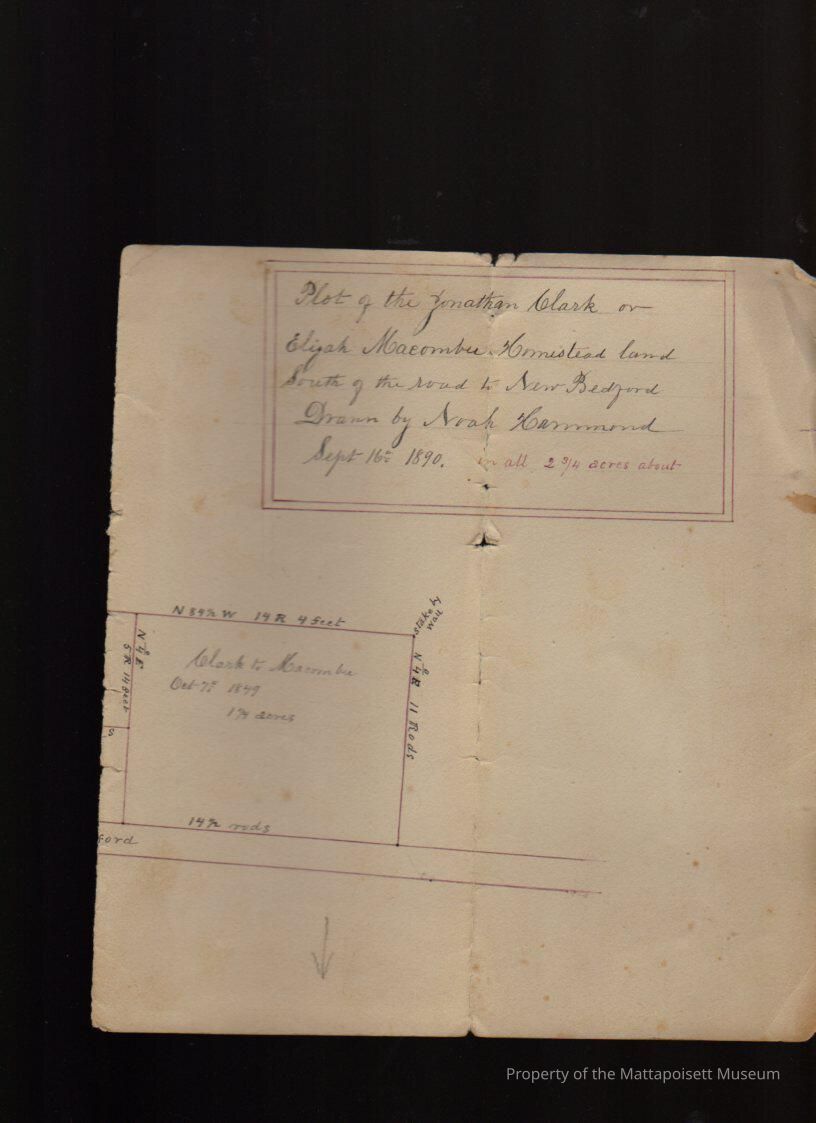 Plot of the Jonathan Clark or
Elijah Macomber Homestead land
South of the road to New Bedford
Drawn by Noah Hammond
Sept 16th 1890. in all 2 3/4 acres about
N 89½ W 14 R 4 feet
stake by
wall
N 4° E
5 R 14 feet
Clark to Macomber
Oct 7th 1849
1¼ acres
N 4° E 11 Rods
S
14½ rods
ford
Property of the Mattapoisett Museum